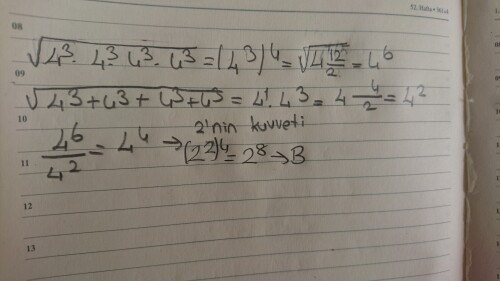 52. Hafta
08
√4³. 4³ 4³. 4³ = (4³)⁴ = √4 12/2 = 4⁶
09
√4³+4³+4³+4³ = 4¹. 4³ = 4 4/2 = 4²
10
4⁶/4² = 4⁴ → 2'nin kuvveti
11
(2²)⁴ = 2⁸ → B
12
13